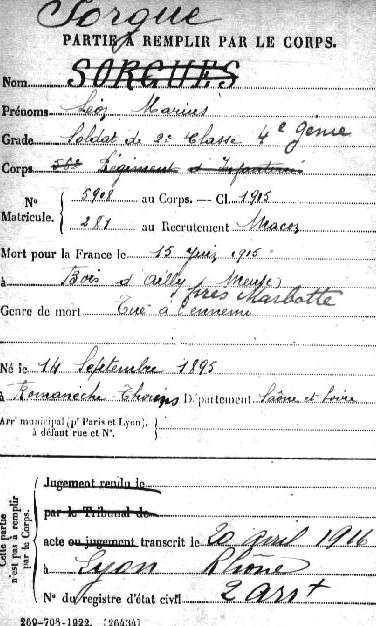 Sorgue
PARTIE À REMPLIR PAR LE CORPS.
Nom SORGUES
Prénoms Léon Marius
Grade Soldat de 2e Classe 4e génie
Corps 56e Régiment d'Infanterie
N° Matricule. { 5908 au Corps. — Cl. 1915
281 au Recrutement Macon
Mort pour la France le 15 Juin 1915
à Bois d'Ailly (Meuse)
près Marbotte
Genre de mort Tué à l'ennemi
Né le 14 Septembre 1895
à Romanèche Thorins Département Saône et Loire
Arrt municipal (pr Paris et Lyon), {
à défaut rue et N°.
Cette partie n'est pas à remplir par le Corps.
Jugement rendu le
par le Tribunal de
acte ou jugement transcrit le 20 avril 1916
à Lyon Rhône
N° du registre d'état civil 2 arrt
269-708-1922. [26434]